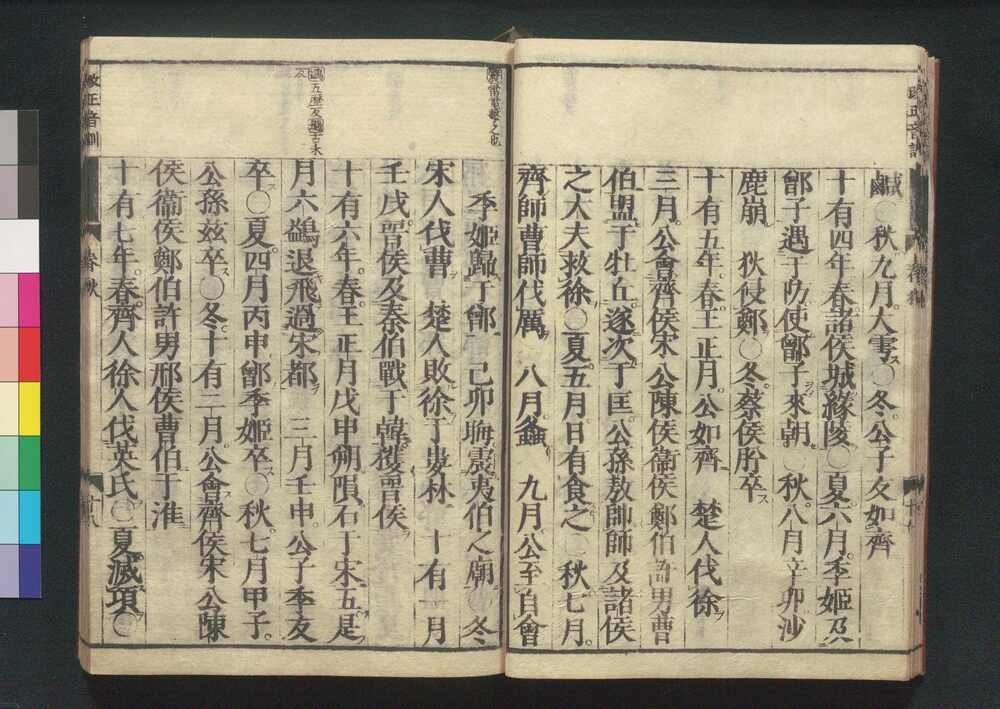 鹹○秋九月大雩ス○冬公子友如齊
十有四年春諸侯城緣陵○夏六月季姬及
鄫子遇于防使鄫子來朝○秋八月辛卯沙
鹿崩 狄侵鄭○冬蔡侯肸卒ス
十有五年春王正月公如齊 楚人伐徐
三月公會齊侯宋公陳侯衞侯鄭伯許男曹
伯盟于牡丘遂次于匡公孫敖帥師及諸侯
之大夫救徐○夏五月日有食之○秋七月
齊師曹師伐厲 八月螽 九月公至自會
季姬歸于鄫 己卯晦震夷伯之廟○冬
宋人伐曹 楚人敗徐于婁林 十有一月
壬戌晉侯及秦伯戰于韓獲晉侯
十有六年春王正月戊申朔隕石于宋五是
月六鷁退飛過宋都 三月壬申公子季友
卒ス○夏四月丙申鄫季姬卒ス○秋七月甲子
公孫茲卒ス○冬十有二月公會齊侯宋公陳
侯衞侯鄭伯許男邢侯曹伯于淮
十有七年春齊人徐人伐英氏○夏滅項○
改正音訓
春秋
十八